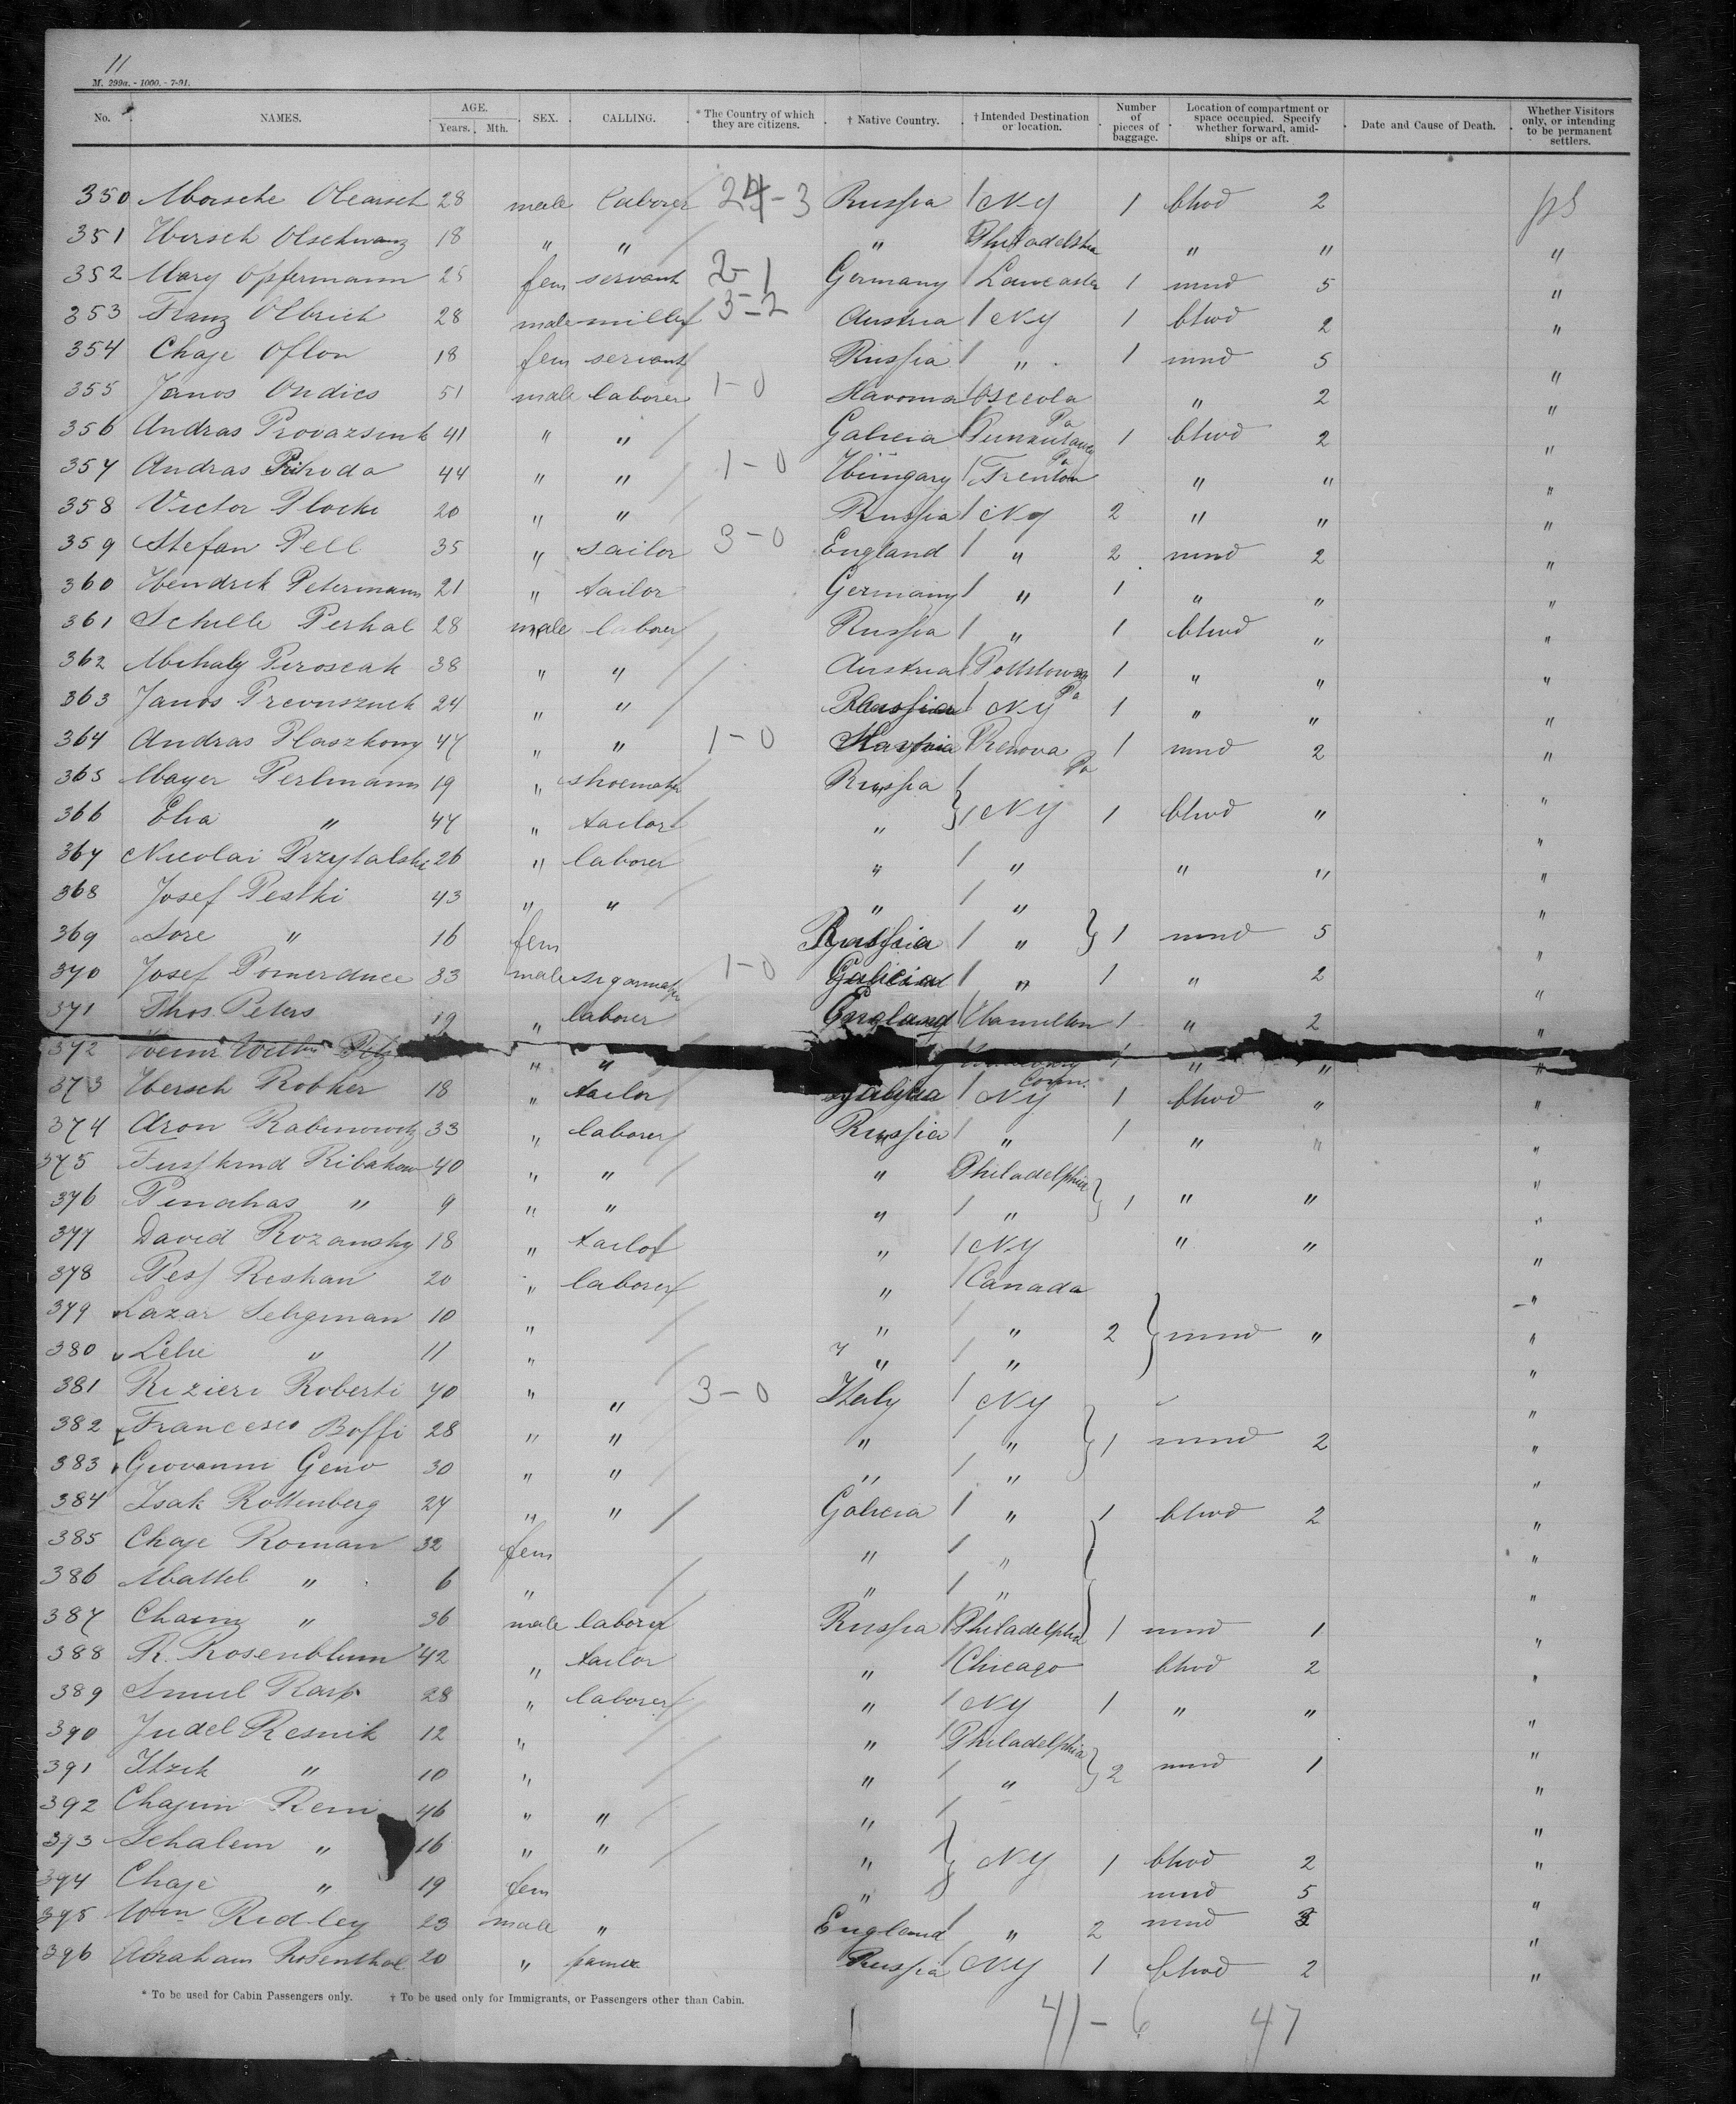 11
M. 299a. - 1000. - 7-91.
No. NAMES. AGE. Years. Mth. SEX. CALLING. * The Country of which they are citizens. † Native Country. † Intended Destination or location. Number of pieces of baggage. Location of compartment or space occupied. Specify whether forward, amid-ships or aft. Date and Cause of Death. Whether Visitors only, or intending to be permanent settlers.
350 28 male laborer Russia NY 1 2 ps
351 Hersch Olschwanz 18 " " " Philadelphia " " "
352 Mary Opfermann 25 fem servant 2-1 Germany Lancaster 1 mnd 5 "
353 Franz Olbrich 28 male miller 3-2 Austria NY 1 2 "
354 Chaje Oflon 18 fem servant Russia " 1 mnd 5 "
355 Janos Ondics 51 male laborer 1-0 Osceola Pa " 2 "
356 Andras 41 " " Galicia 1 2 "
357 Andras Prihoda 44 " " 1-0 Hungary Trenton " " "
358 Victor Plocki 20 " " Russia NY 2 " " "
359 Stefan Pell 35 " sailor 3-0 England " 2 mnd 2 "
360 Hendrik Petermann 21 " tailor Germany " 1 " " "
361 Schille Perkal 28 male laborer Russia " 1 " "
362 Mihaly Piroscak 38 " " Austria Pottstown Pa 1 " " "
363 Janos 24 " " NY 1 " " "
364 Andras Plaszkony 47 " " 1-0 Renova Pa 1 mnd 2 "
365 Mayer Perlmann 19 " shoemaker Russia
366 Elia " 47 " tailor " NY 1 " "
367 Nicolai Przytalski 26 " laborer " " " " "
368 Josef Pestki 43 " " " " "
369 Sore " 16 fem Russia " 1 mnd 5 "
370 Josef 33 male 1-0 Galicia " 1 " 2 "
371 Thos Peters 19 " laborer England Hamilton 1 " 2 "
372 " " Conn. " " "
373 Hersch Robker 18 " tailor NY 1 " "
374 Aron Rabinowitz 33 " laborer Russia " 1 " " "
375 Ribakow 40 " " " Philadelphia
376 Pinchas " 9 " " " " 1 " " "
377 David Rozansky 18 " tailor " NY " " "
378 Pess Reskan 20 " laborer " Canada
379 Lazar Seligman 10 " " " 2 mnd " "
380 Lehe " 11 " " " "
381 Rizieri Roberti 40 " " 3-0 Italy NY "
382 Francesco Boffi 28 " " " " 1 mnd 2 "
383 Giovanni Geno 30 " " " " "
384 Isak Rottenberg 27 " " Galicia " 1 2 "
385 Chaje Roman 32 fem " " "
386 Mattel " 6 " " " "
387 Chaim " 36 male laborer Russia Philadelphia 1 mnd 1 "
388 R. Rosenblum 42 " tailor " Chicago 2 "
389 Smul Karp 28 " laborer " NY 1 " " "
390 Judel Resnik 12 " " Philadelphia "
391 Itzik " 10 " " " 2 mnd 1 "
392 Chajim 46 " " " "
393 Schalem " 16 " " " NY 1 2 "
394 Chaje " 19 fem " mnd 5 "
395 Wm Ridley 23 male " England " 2 mnd "
396 Abraham Rosenthal 20 " Russia NY 1 2 "
* To be used for Cabin Passengers only. † To be used only for Immigrants, or Passengers other than Cabin.
41-6 47